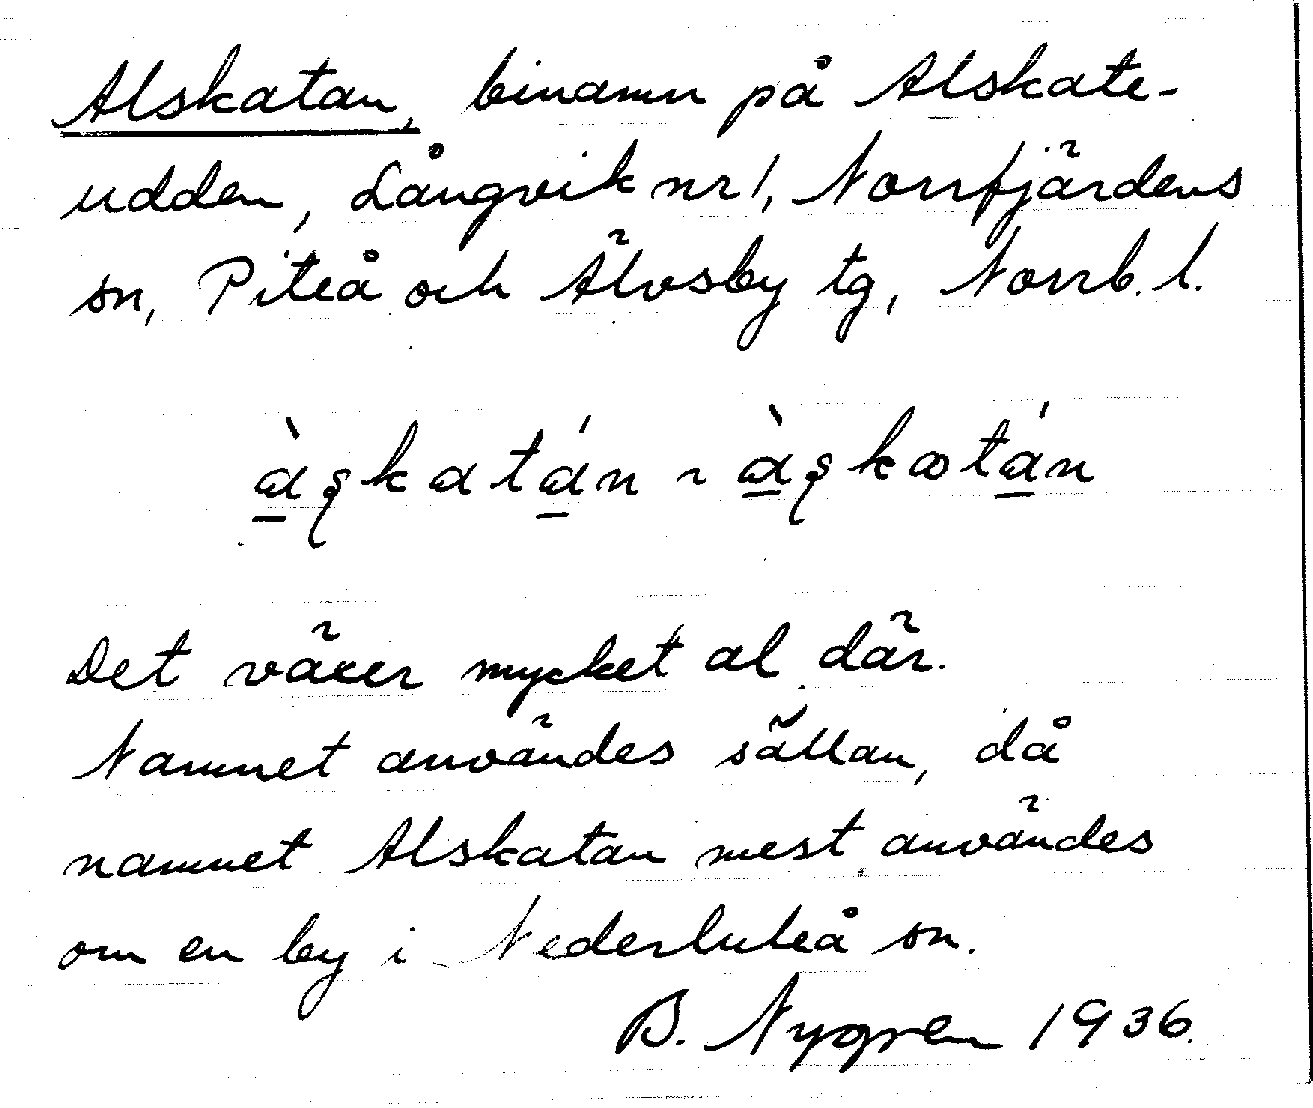 Alskatan, binamn på Alskate-
udden, Långvik nr 1, Norrfjärdens
sn, Piteå och Älvsby tg, Norrb. l.
Det växer mycket al där.
Namnet användes sällan, då
namnet Alskatan mest användes
om en by i Nederluleå sn.
B. Nygren 1936.